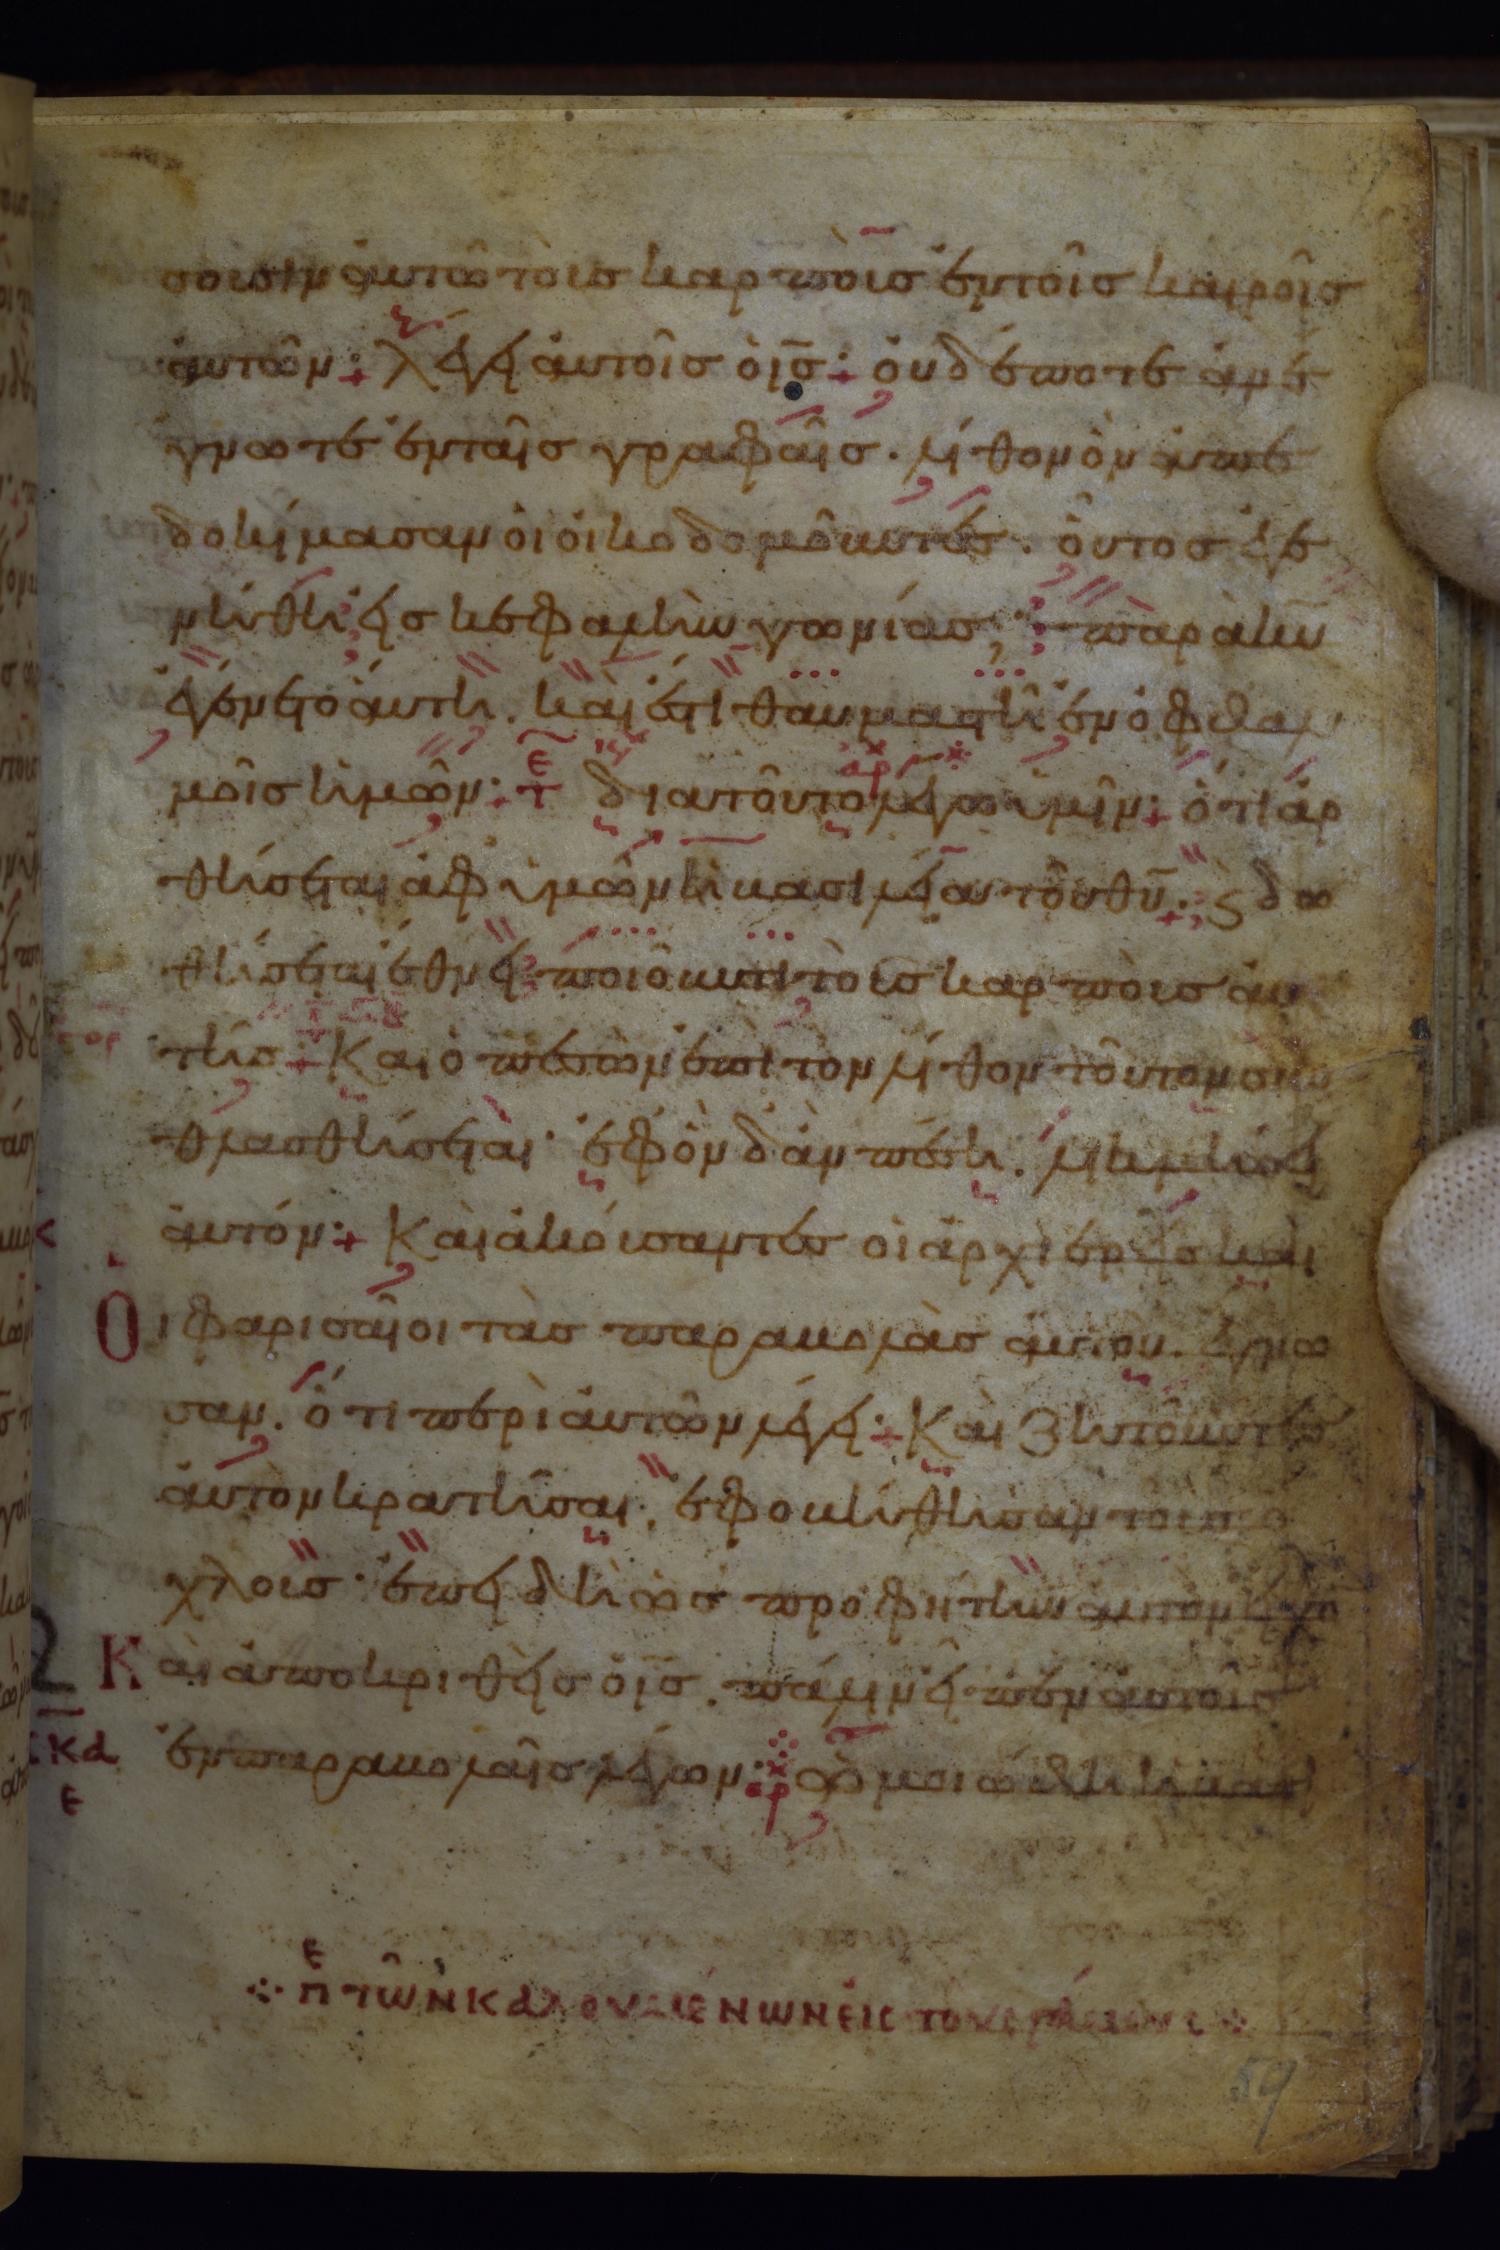 σουσιν αυτῶ τοὺς καρποὺς ἐν τοῖς καιροῖς
ἀυτῶν: λέγει ἀυτοῖς ὁ ις̅: ὀυδέποτε ἀνέ
γνωτε ἐν ταῖς γραφαῖς. λίθον ὃν ἀπε
δοκίμασαν ὁι ὀικοδομοῦντες. οὗτος ἐγε
νήθη εἰς κεφαλὴν γωνίας; παρὰ κυ̅
ἐγένετο ἀυτη. καὶ ἔστι θαυμαστὴ ἐν ὀφθαλ
μοῖς ἡμῶν: τε διατοῦτο λέγω ὑμῖν: ὅτι ἀρ
θήσεται ἀφ ὑμῶν ἡ βασιλεία τοῦ θυ̅. ϗ δο
θήσεται ἔθνει ποιοῦντι τοὺς καρποὺς ἀυ
τῆς: Και ὁ πεσὼν ἐπὶ τὸν λίθον τοῦτον συν
θλασθήσεται· ἐφ ὃν δ ἀν πέση. λικμήσει
ἀυτόν: Καὶ ἀκούσαντες οἱ ἀρχιερεῖς και
Οι φαρισαῖοι τὰς παραβολὰς ἀυτου. ἔγνω
σαν. ὅτι περὶ ἀυτῶν λέγει: Και ζητοῦντες
ἀυτὸν κρατῆσαι. ἐφοβήθησαν τοὺς ὄ
χλους· ἐπειδὴ ὡς προφήτην ἀυτὸν εἶχον
Και ἀποκριθεὶς ὁ ις̅. πάλιν εἶπεν ἀυτοῖς
ἐν παραβολαῖς λέγων: ὡμοιώθη ἡ βασι
κα
ε
πε τῶν καλουμένων εἰς τοὺς γάμους
59